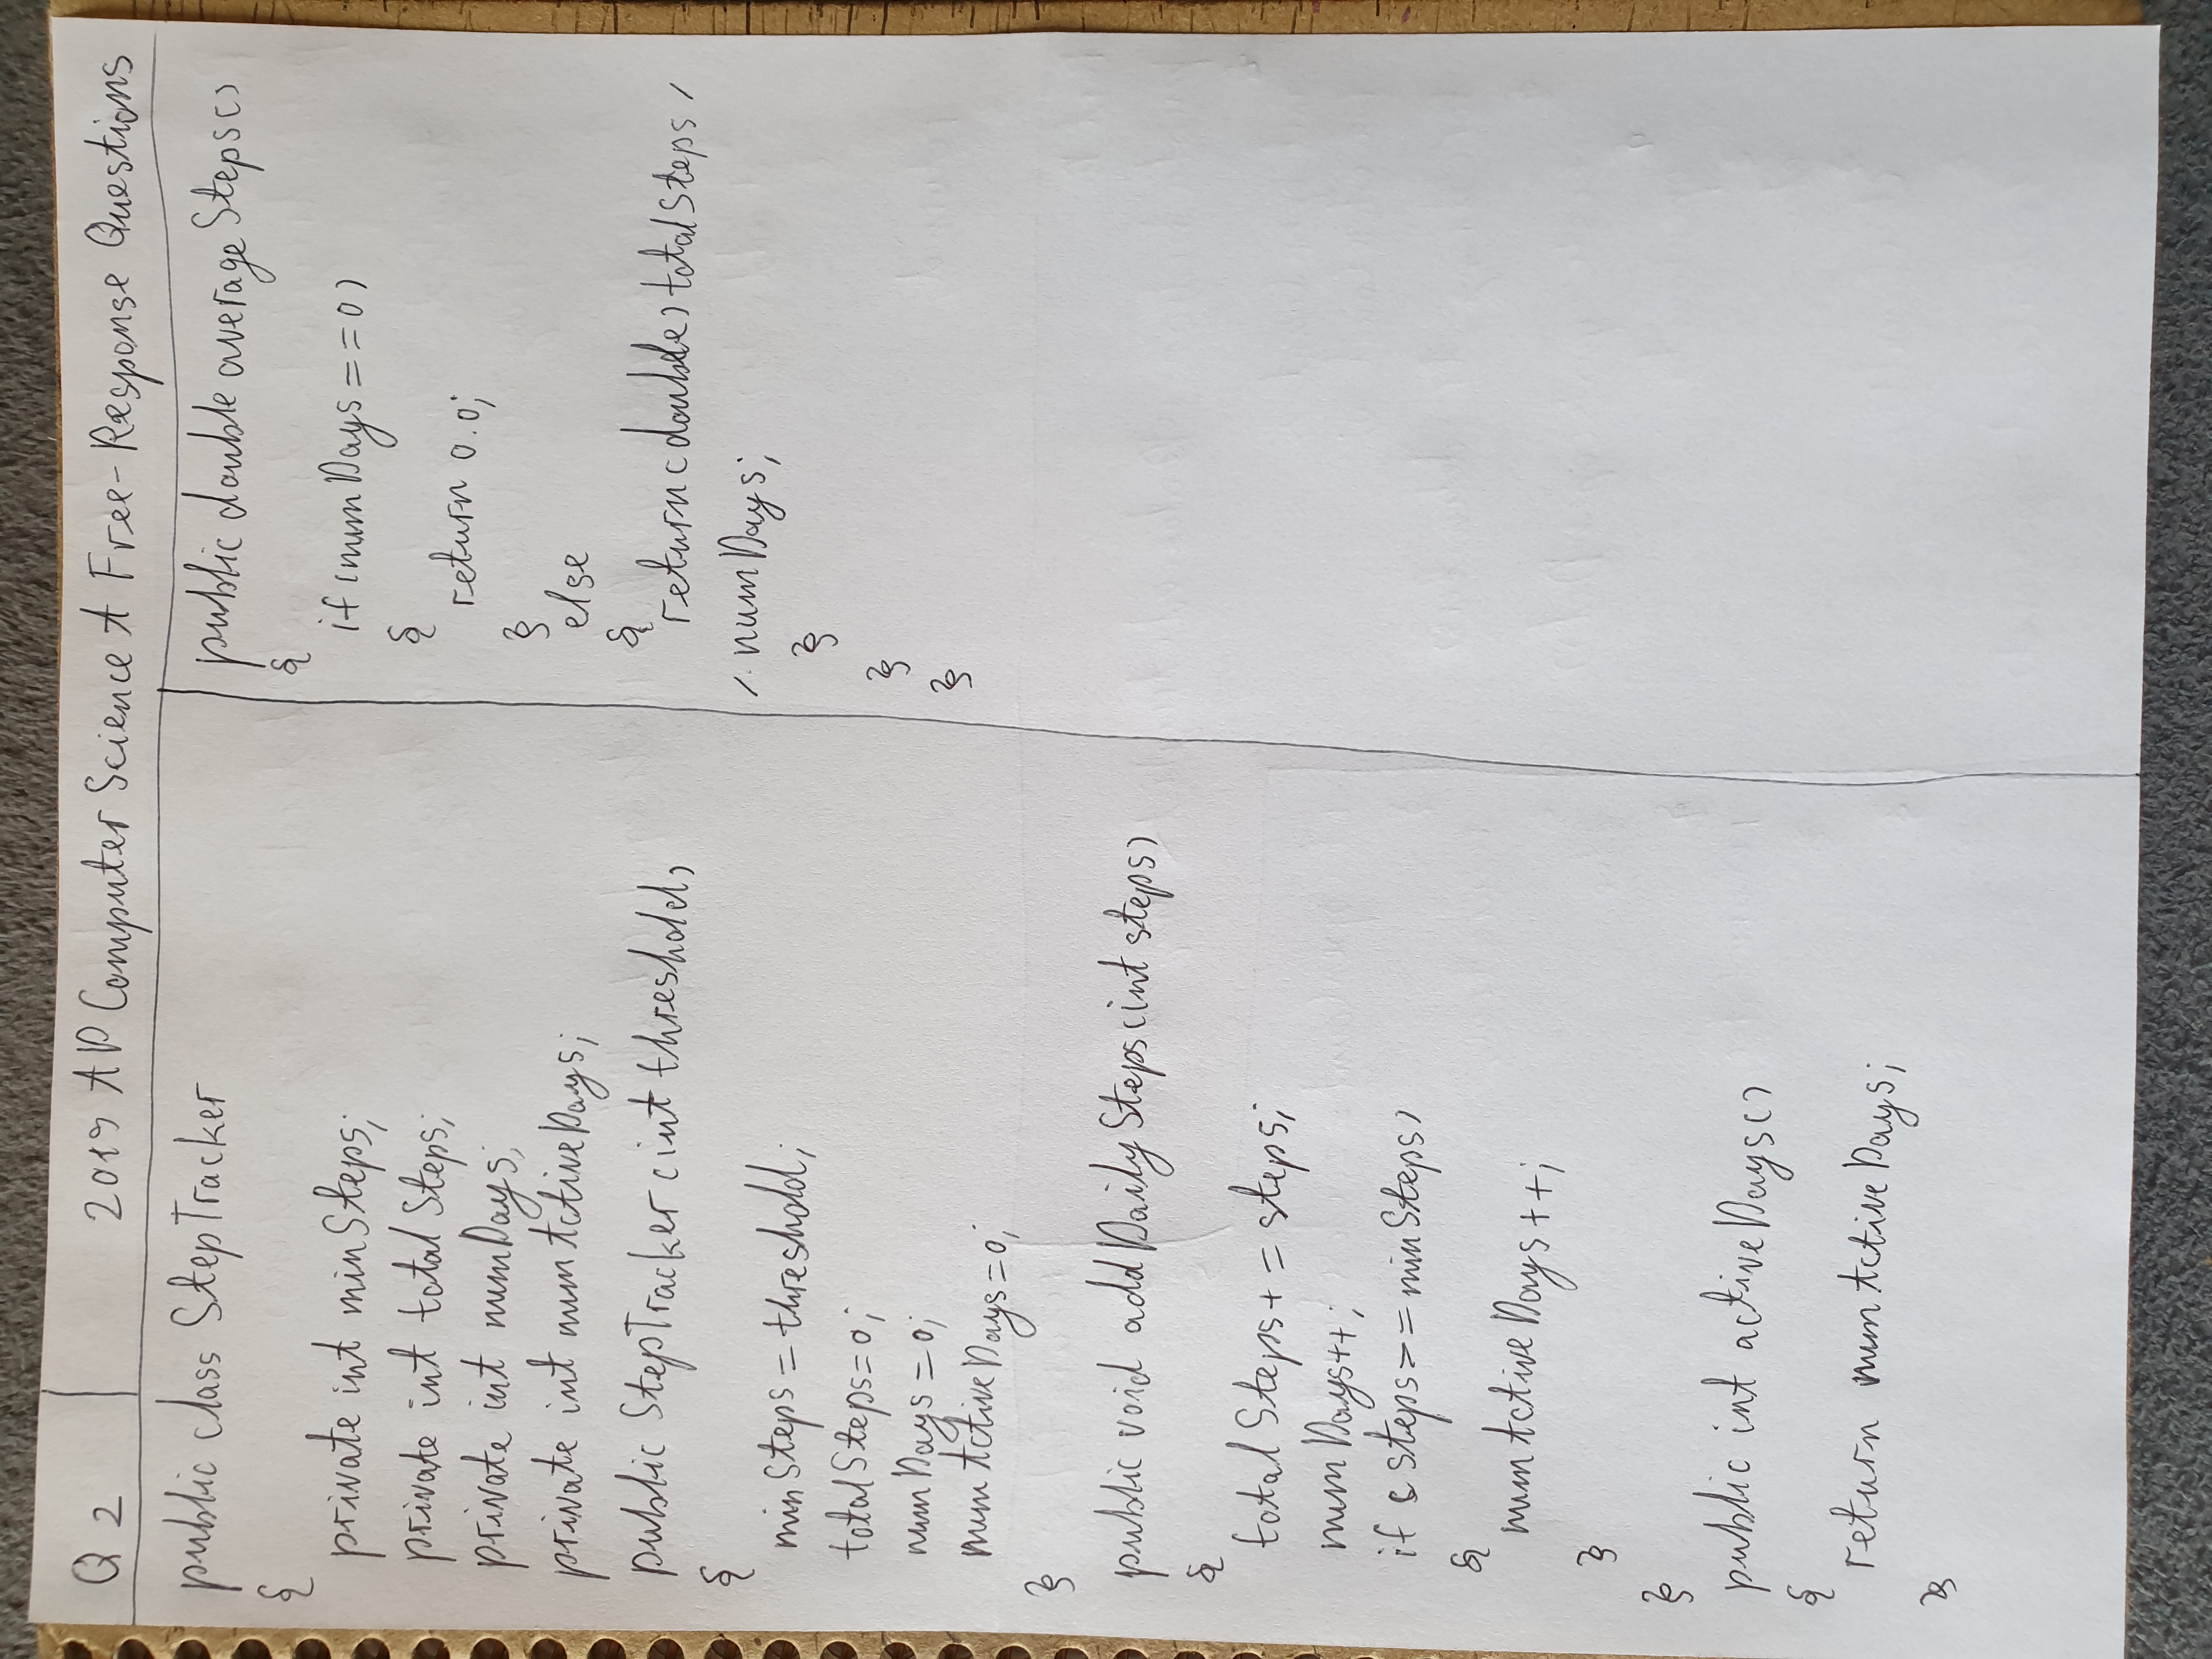 Q 2
2019 AP Computer Science A Free-Response Questions
public class StepTracker
{
private int minSteps;
private int totalSteps;
private int numDays;
private int numActiveDays;
public StepTracker (int threshold)
{
minSteps = threshold;
totalSteps = 0;
numDays = 0;
numActiveDays = 0;
}
public void addDailySteps(int steps)
{
totalSteps += steps;
numDays++;
if ( steps >= minSteps)
{
numActiveDays ++;
}
}
public int activeDays()
{
return numActiveDays;
}
public double averageSteps()
{
if (numDays == 0)
{
return 0.0;
}
else
{
return (double) totalSteps /
/ numDays;
}
}
}